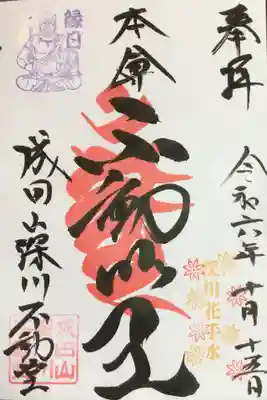 奉拝
令和六年十月十五日
深川花手水
本尊
不動明王
縁日
成田山深川不動堂